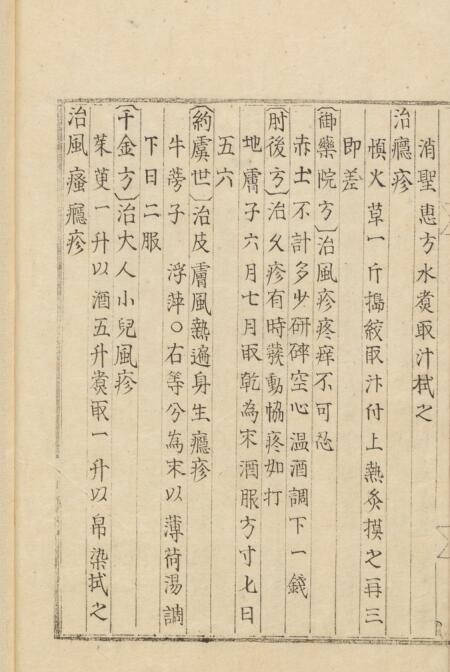 消聖惠方水煑取汁拭之
治癮疹
愼火草一斤搗絞取汁付上熱灸摸之再三
即差
御藥院方治風疹疼痒不可忍
赤土不計多少研碎空心温酒調下一錢
肘後方治久疹有時發動恊疼如打
地膚子六月七月取乾為末酒服方寸匕日
五六
約虞世治皮膚風熱遍身生癮疹
牛蒡子 浮萍○右等分為末以薄荷湯調
下日二服
千金方治大人小兒風疹
茱萸一升以酒五升煑取一升以帛染拭之
治風瘙癮疹